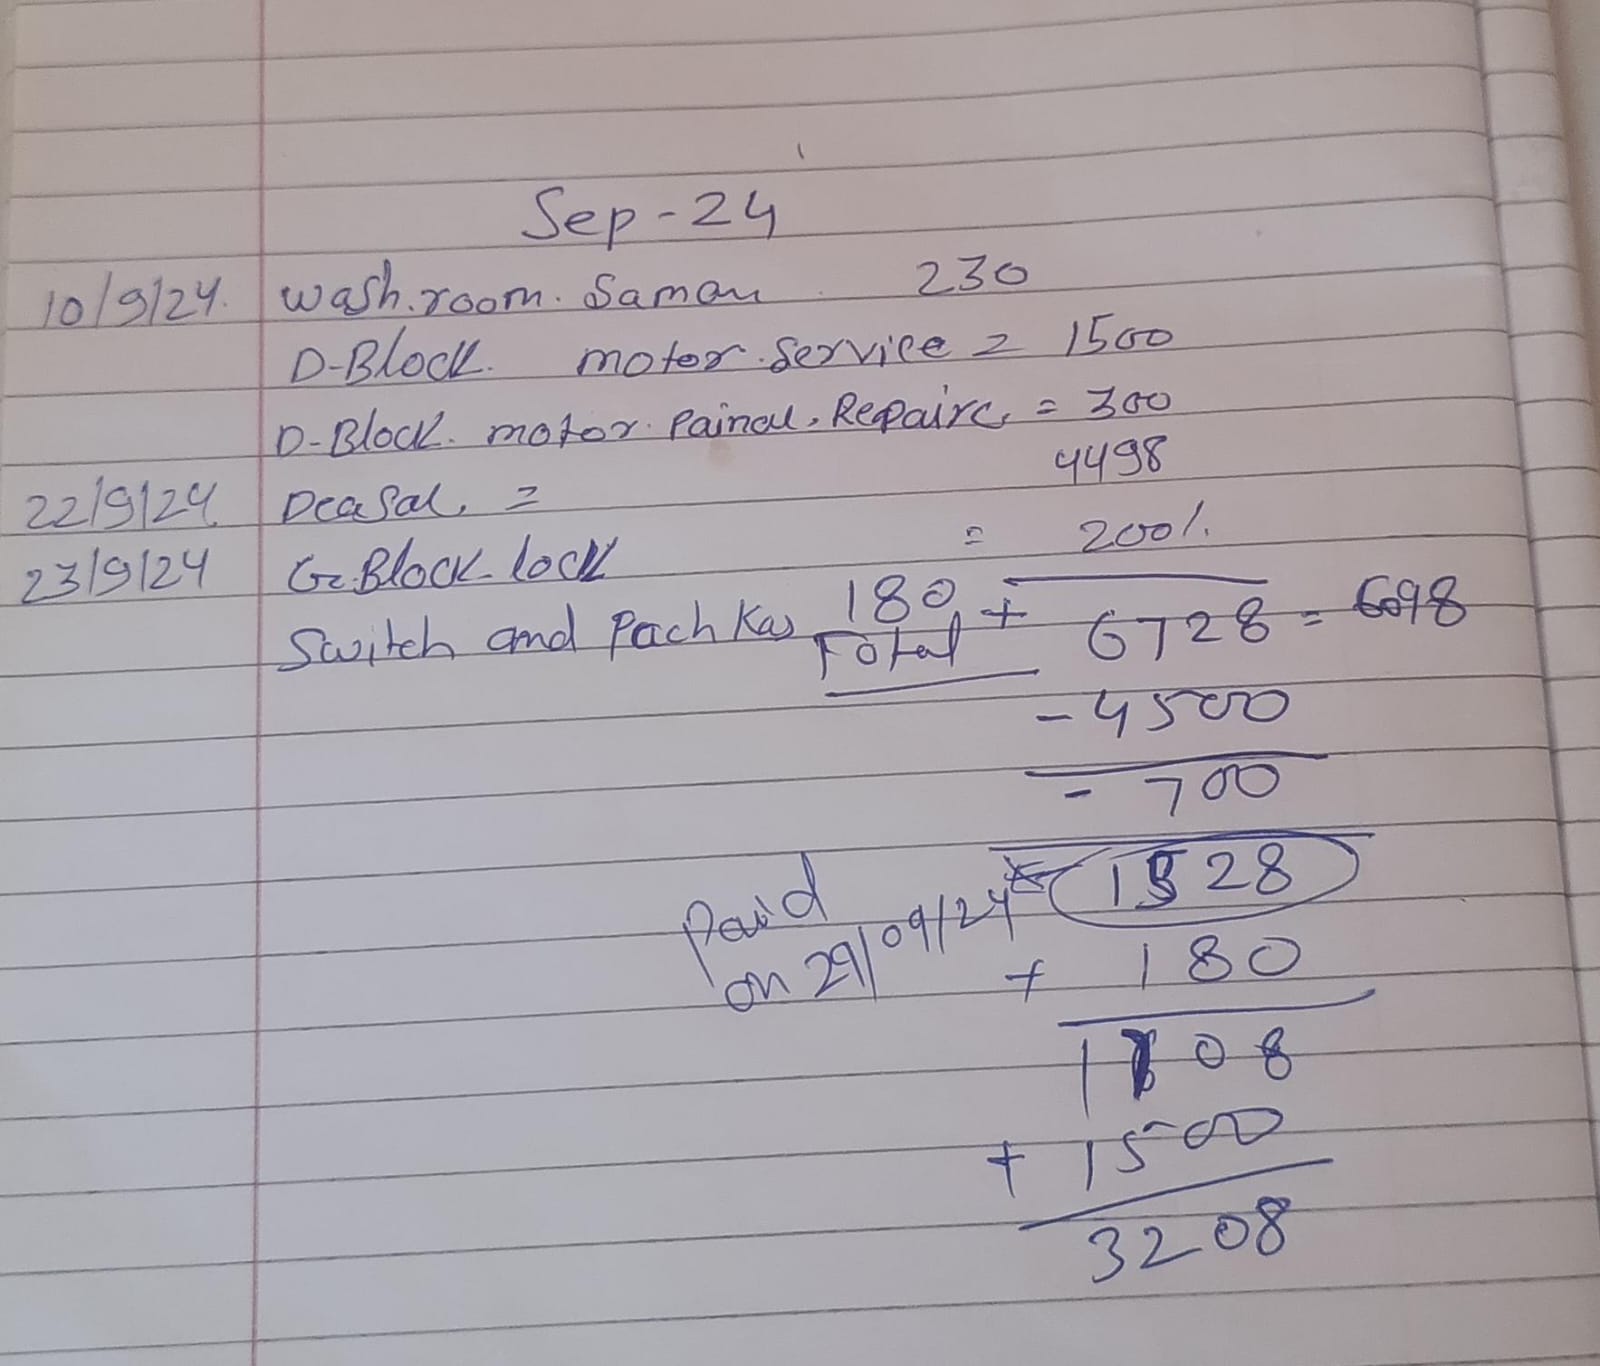 Sep-24
10/9/24. Wash.room. Saman 230
D-Block. motor.Service = 1500
D-Block. motor. Painal. Repairc = 300
22/9/24 Deasal. = 4498
23/9/24 G.Block lock = 200/.
Switch and Pachkas 180 +
Total 6728 = 6098
- 4500
- 700
Paid on 29/09/24 1528
+ 180
1708
+ 1500
3208